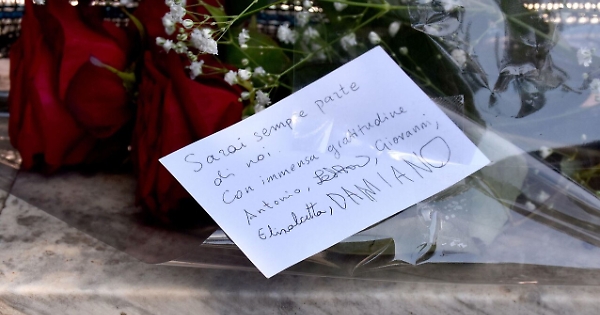 Sarai sempre parte
di noi.
Con immensa gratitudine
Antonio, Giovanni,
Elisabetta, DAMIANO